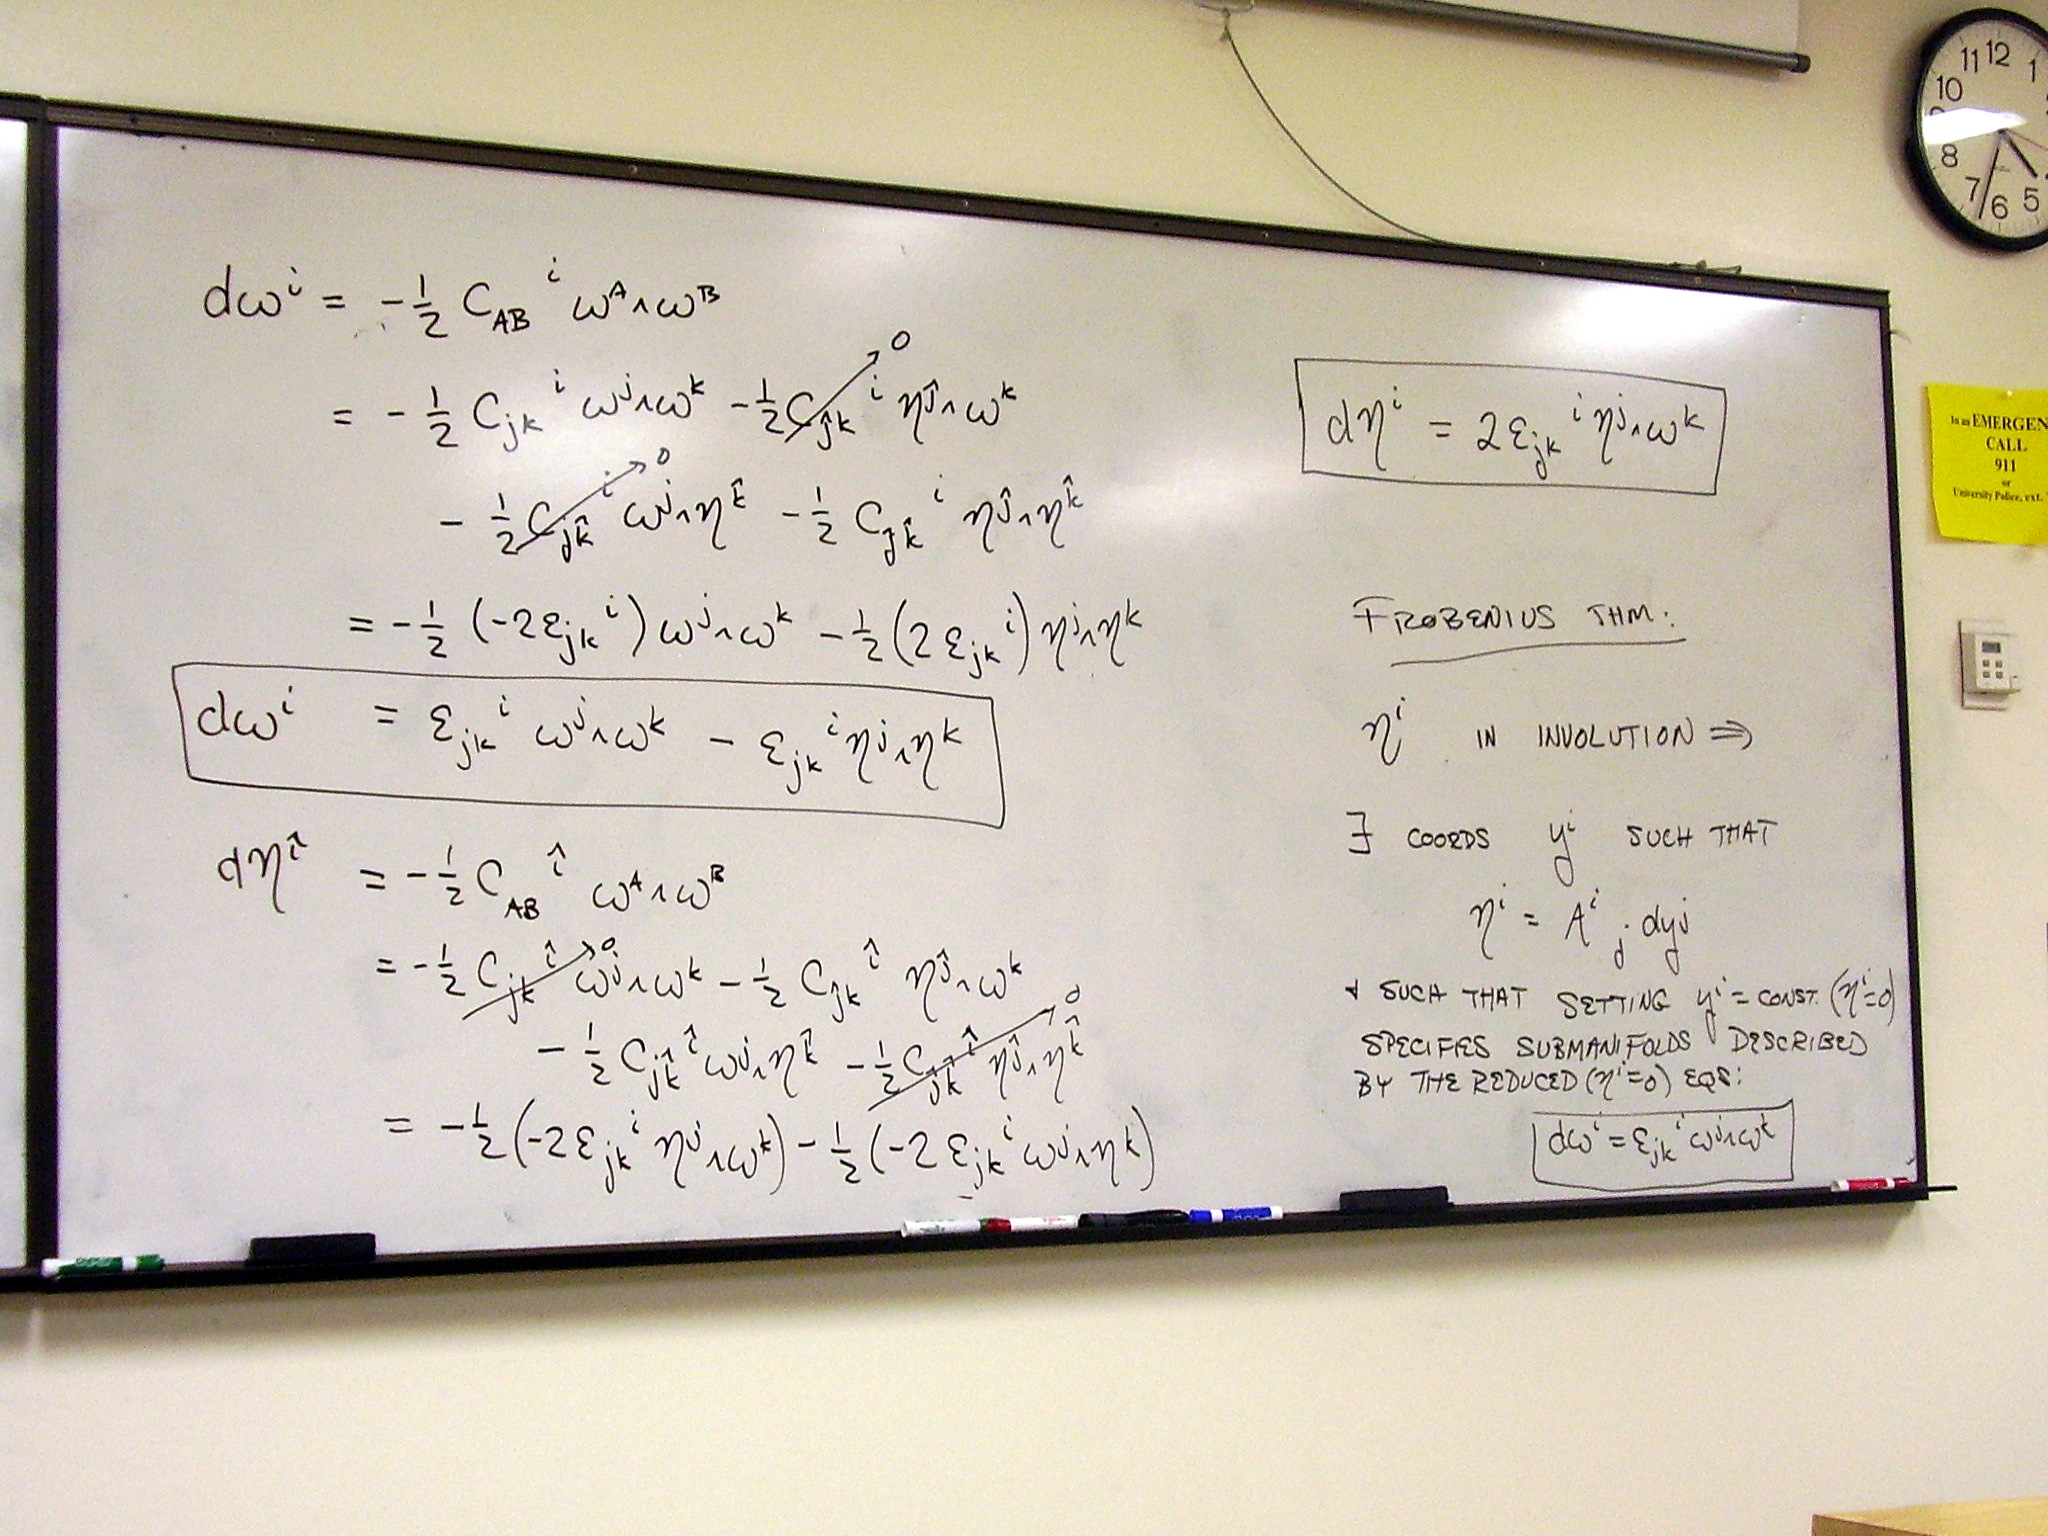 dωⁱ = -½ C_AB ⁱ ω^A ∧ ω^B
= -½ C_jk ⁱ ω^j ∧ ω^k - ½ C_ĵk ⁱ η^ĵ ∧ ω^k → 0
- ½ C_jk̂ ⁱ → 0 ω^j ∧ η^k̂ - ½ C_ĵk̂ ⁱ η^ĵ ∧ η^k̂
= -½ (-2ε_jk ⁱ) ω^j ∧ ω^k - ½ (2ε_jk ⁱ) η^j ∧ η^k
dωⁱ = ε_jk ⁱ ω^j ∧ ω^k - ε_jk ⁱ η^j ∧ η^k
dη^î = -½ C_AB ^î ω^A ∧ ω^B
= -½ C_jk ^î → 0 ω^j ∧ ω^k - ½ C_ĵk ^î η^ĵ ∧ ω^k
- ½ C_jk̂ ^î ω^j ∧ η^k̂ - ½ C_ĵk̂ ^î η^ĵ ∧ η^k̂ → 0
= -½ (-2ε_jk ⁱ η^j ∧ ω^k) - ½ (-2ε_jk ⁱ ω^j ∧ η^k)
dηⁱ = 2ε_jk ⁱ η^j ∧ ω^k
FROBENIUS THM:
ηⁱ IN INVOLUTION ⇒
∃ COORDS yⁱ SUCH THAT
ηⁱ = Aⁱ_j dy^j
& SUCH THAT SETTING yⁱ = CONST. (ηⁱ=0)
SPECIFIES SUBMANIFOLDS DESCRIBED
BY THE REDUCED (ηⁱ=0) EQS:
dωⁱ = ε_jk ⁱ ω^j ∧ ω^k
11 12 1
10
8
7 6 5
In an EMERGEN
CALL
911
or
University Police, ext.